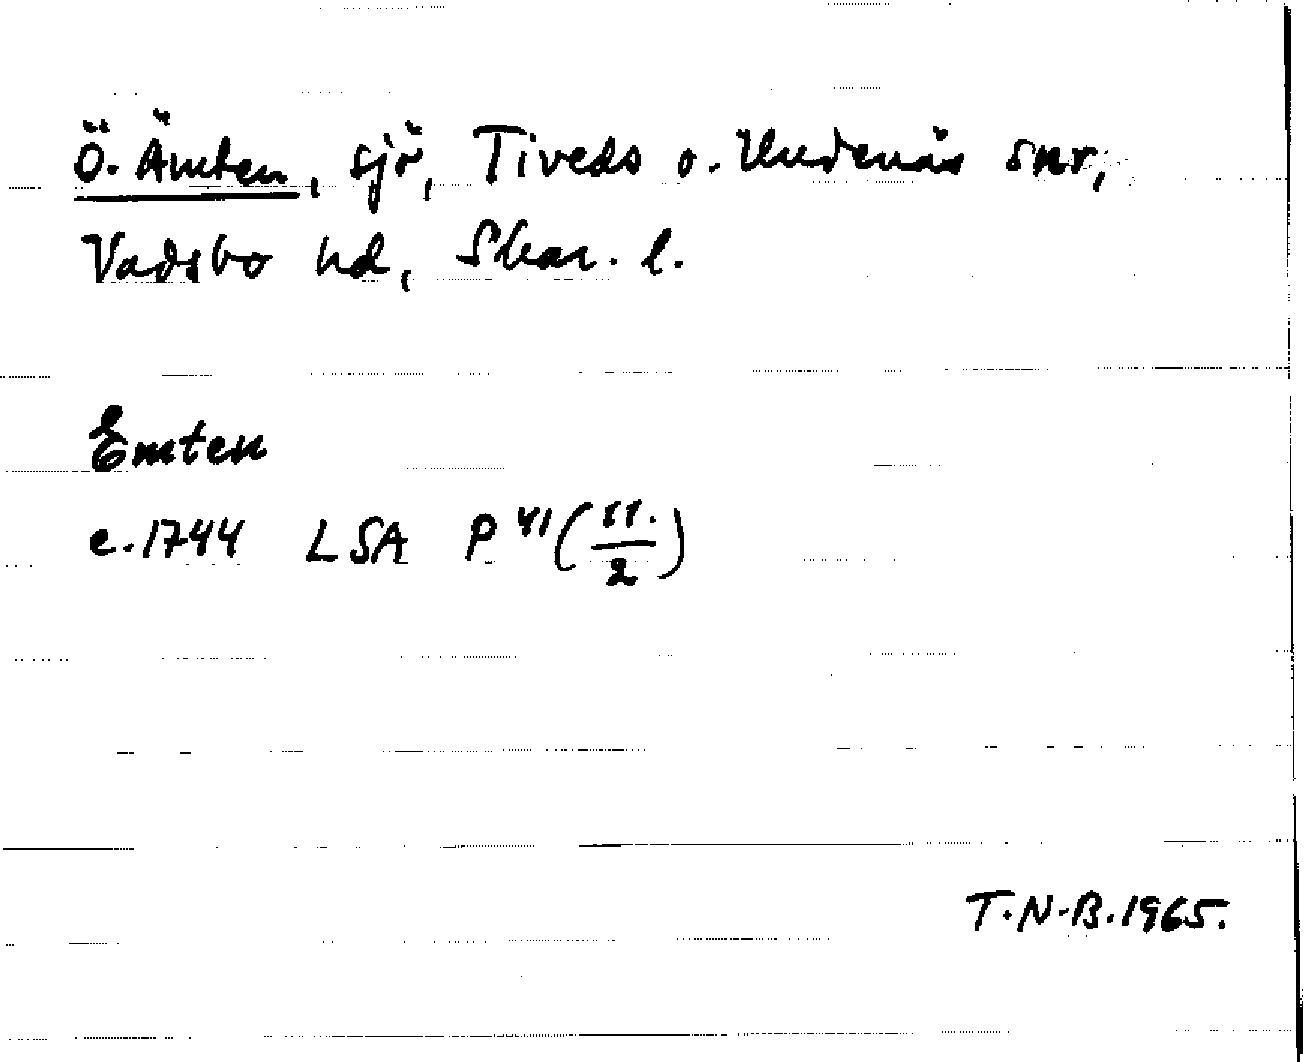 Ö. Ämten, sjö, Tiveds o. Undenäs snr,
Vadsbo hd, Skar. l.
Emten
c. 1744 LSA P 41 (11./2)
T.N-B. 1965.